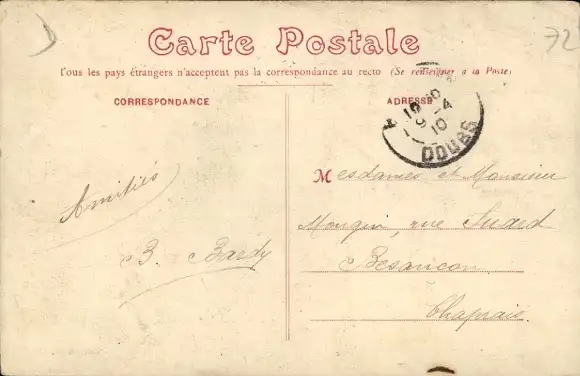 72
Carte Postale
Tous les pays étrangers n'acceptent pas la correspondance au recto (Se renseigner à la Poste)
CORRESPONDANCE
ADRESSE
19
9-4
10
DOUBS
Amitiés
B. Bardy
Mesdames et Monsieur
Mougin, rue Suard
Besançon
Chaprais.